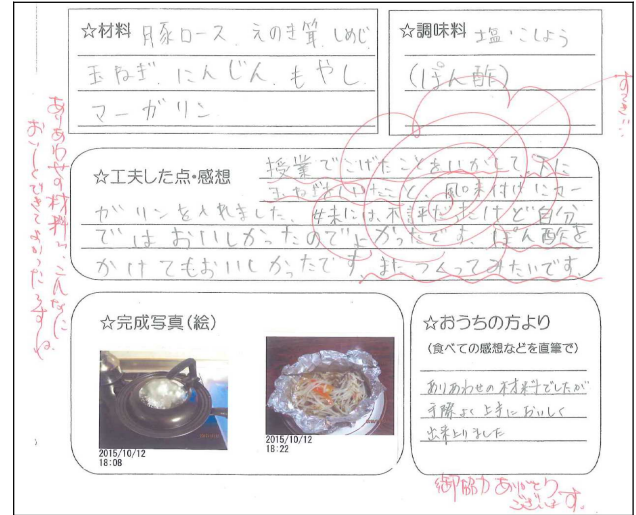 ☆材料 豚ロース、えのき茸、しめじ
玉ねぎ、にんじん、もやし
マーガリン
☆調味料 塩・こしょう
(ぽん酢)
☆工夫した点・感想 授業でこげたことをいかして、下に
玉ねぎをしいたことと、風味付けにマー
ガリンを入れました。妹には不評だったけど自分
ではおいしかったのでよかったです。ぽん酢を
かけてもおいしかったです。また、つくってみたいです。
ありあわせの材料で、こんなに
おいしくできてよかったですね
☆完成写真(絵)
2015/10/12
18:08
2015/10/12
18:22
☆おうちの方より
(食べての感想などを直筆で)
ありあわせの材料でしたが
手際よく上手においしく
出来上りました
御協力ありがとう
ございます。